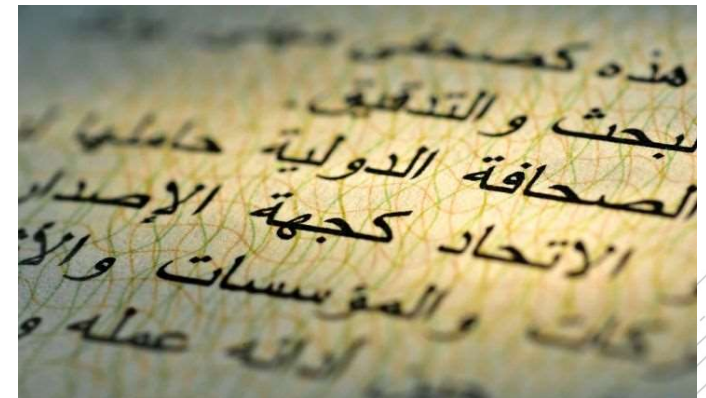 هذه كصحفي
لبحث والتدقيق.
الصحافة الدولية حاملها
الاتحاد كجهة الإصدار
ركات والمؤسسات والأ
ادائه عمله و